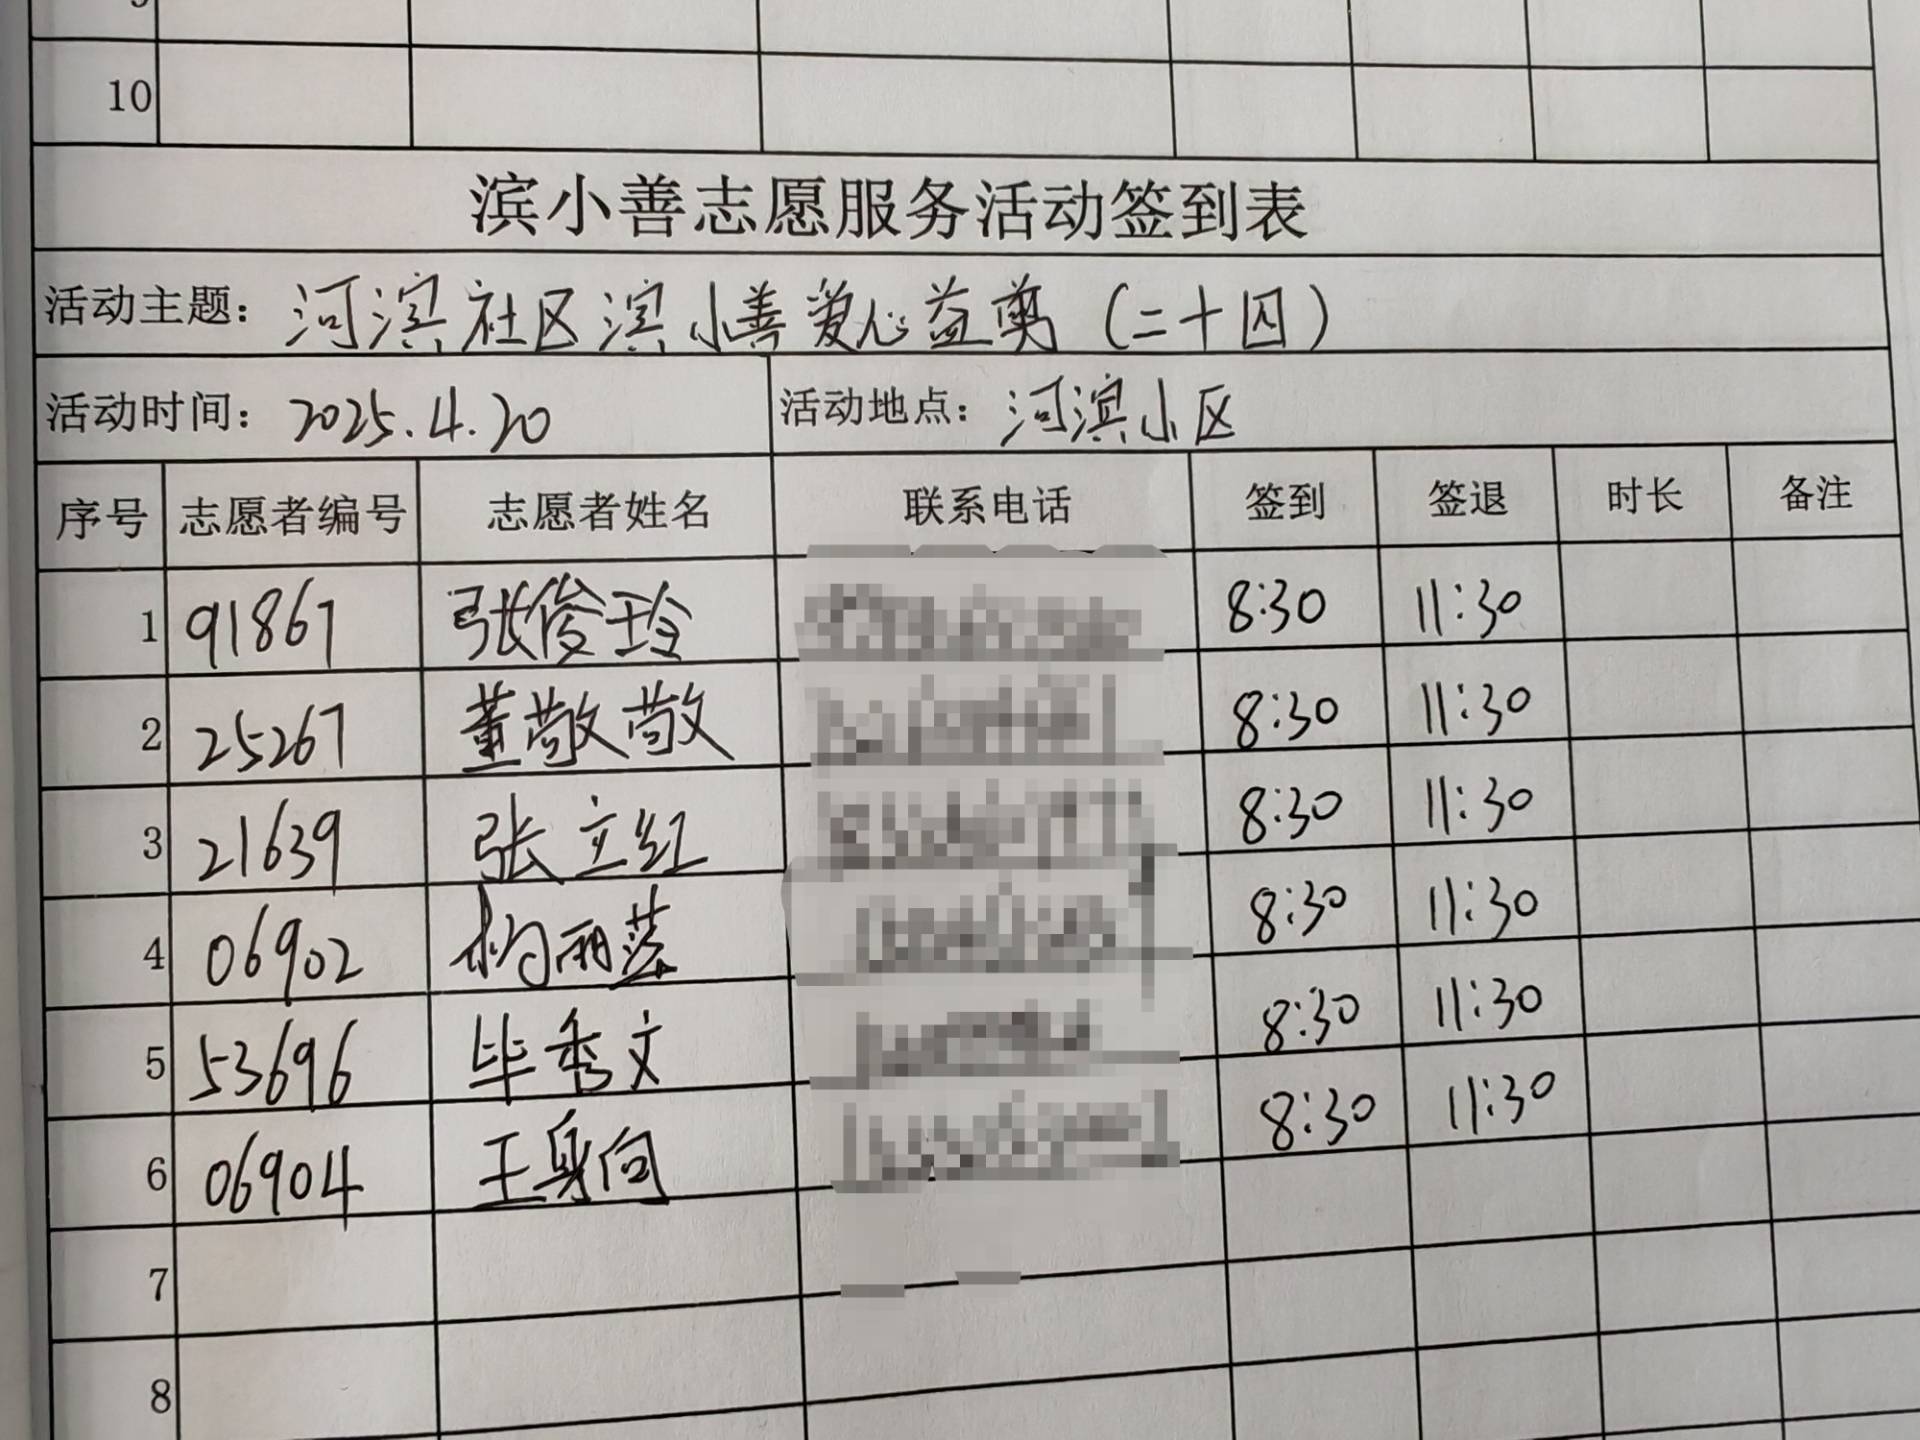 10
滨小善志愿服务活动签到表
活动主题：河滨社区滨小善爱心益剪（二十四）
活动时间：2025.4.20 活动地点：河滨小区
序号 志愿者编号 志愿者姓名 联系电话 签到 签退 时长 备注
1 91867 张俊玲 8:30 11:30
2 25267 董敬敬 8:30 11:30
3 21639 张立红 8:30 11:30
4 06902 杨丽萍 8:30 11:30
5 53696 毕秀文 8:30 11:30
6 06904 王身向 8:30 11:30
7
8